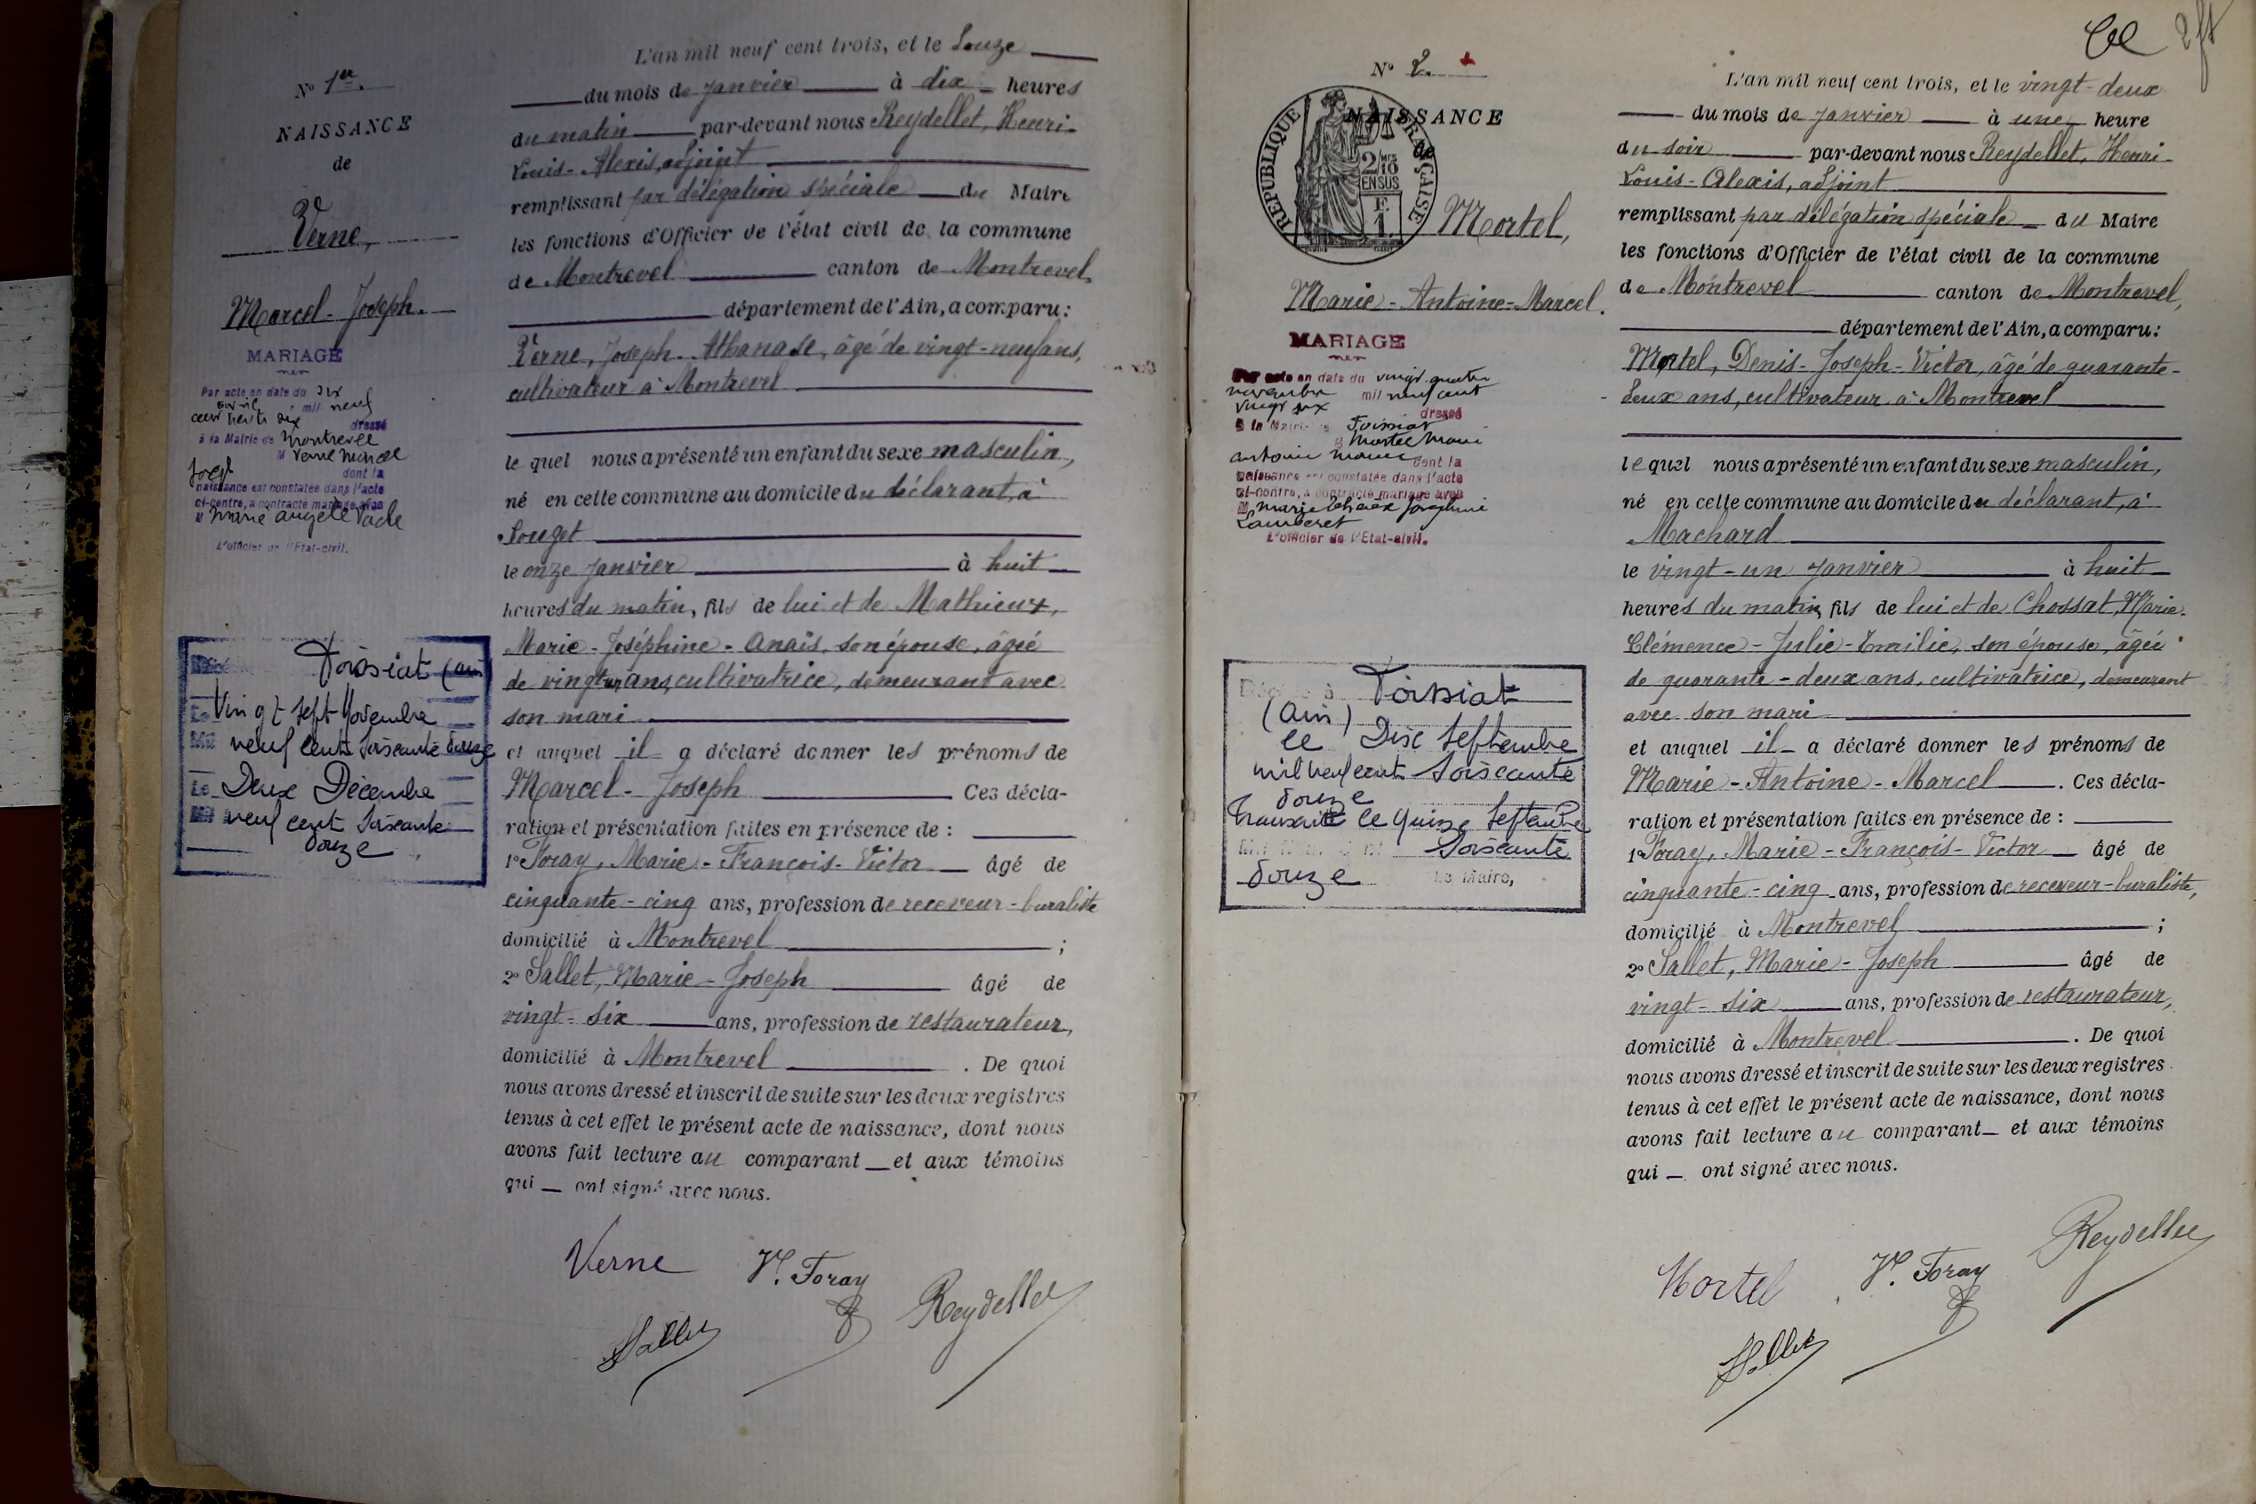 N° 1er.
NAISSANCE
de
Verne,
Marcel-Joseph.
MARIAGE
Par acte en date du dix
avril mil neuf
cent trente six dressé
à la Mairie de Montrevel
M Verne Marcel
Joseph dont la
naissance est constatée dans l'acte
ci-contre, a contracté mariage avec
M Marie Angèle Vacle
L'officier de l'Etat-civil.
Foissiat (Ain
Le Vingt sept Novembre
Mil neuf cent soixante douze
Le Deux Décembre
Mil neuf cent soixante
douze
L'an mil neuf cent trois, et le douze
du mois de janvier à dix heures
du matin par-devant nous Reydellet, Henri-
Louis-Alexis, adjoint
remplissant par délégation spéciale du Maire
les fonctions d'Officier de l'état civil de la commune
de Montrevel canton de Montrevel,
département de l'Ain, a comparu:
Verne, Joseph-Athanase, âgé de vingt-neuf ans,
cultivateur à Montrevel
le quel nous a présenté un enfant du sexe masculin,
né en cette commune au domicile du déclarant, à
Souget
le onze janvier à huit
heures du matin, fils de lui et de Mathieux,
Marie-Joséphine-Anaïs, son épouse, âgée
de vingt un ans, cultivatrice, demeurant avec
son mari
et auquel il a déclaré donner les prénoms de
Marcel-Joseph Ces décla-
ration et présentation faites en présence de :
1° Foray, Marie-François-Victor âgé de
cinquante-cinq ans, profession de receveur-buraliste
domicilié à Montrevel ;
2° Sallet, Marie-Joseph âgé de
vingt-six ans, profession de restaurateur,
domicilié à Montrevel . De quoi
nous avons dressé et inscrit de suite sur les deux registres
tenus à cet effet le présent acte de naissance, dont nous
avons fait lecture au comparant et aux témoins
qui ont signé avec nous.
Verne Vr. Foray Reydellet
Sallet
N° 2.
NAISSANCE
de
REPUBLIQUE FRANÇAISE
2/10
EN SUS
F.
1
Mortel,
Marie-Antoine-Marcel.
MARIAGE
Par acte en date du vingt quatre
novembre mil neuf cent
vingt six dressé
à la Mairie de Foissiat
M Mortel Marie
Antoine Marcel dont la
naissance est constatée dans l'acte
ci-contre, a contracté mariage avec
M Marie Joséphine
L'officier de l'Etat-civil.
Décédé à Foissiat
(Ain)
le Dix Septembre
mil neuf cent soixante
douze
Transcrit le Quinze Septembre
Mil neuf cent Soixante
douze Le Maire,
L'an mil neuf cent trois, et le vingt-deux
du mois de janvier à une heure
du soir par-devant nous Reydellet, Henri-
Louis-Alexis, adjoint
remplissant par délégation spéciale du Maire
les fonctions d'Officier de l'état civil de la commune
de Montrevel canton de Montrevel,
département de l'Ain, a comparu:
Mortel, Denis-Joseph-Victor, âgé de quarante-
deux ans, cultivateur à Montrevel
le quel nous a présenté un enfant du sexe masculin,
né en cette commune au domicile du déclarant, à
Machard
le vingt-un janvier à huit
heures du matin, fils de lui et de Chossat, Marie-
Clémence-Julie-Emilie, son épouse, âgée
de quarante-deux ans, cultivatrice, demeurant
avec son mari
et auquel il a déclaré donner les prénoms de
Marie-Antoine-Marcel . Ces décla-
ration et présentation faites en présence de :
1° Foray, Marie-François-Victor âgé de
cinquante-cinq ans, profession de receveur-buraliste,
domicilié à Montrevel ;
2° Sallet, Marie-Joseph âgé de
vingt-six ans, profession de restaurateur,
domicilié à Montrevel . De quoi
nous avons dressé et inscrit de suite sur les deux registres
tenus à cet effet le présent acte de naissance, dont nous
avons fait lecture au comparant et aux témoins
qui ont signé avec nous.
Mortel Vr. Foray Reydellet
Sallet